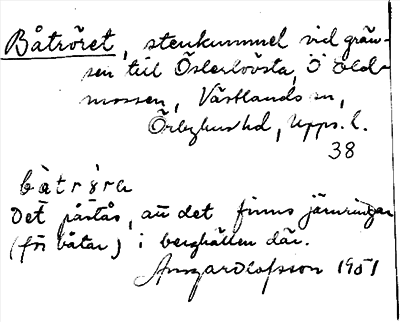 Båtröret, stenkummel vid grän-
sen till Österlövsta, Ö Old-
mossen, Västlands sn,
Örbyhus hd, Upps. l.
38
båtröra
Det påstås, att det finns järnringar
(för båtar) i berghällen där.
Ansgar Olofsson 1951